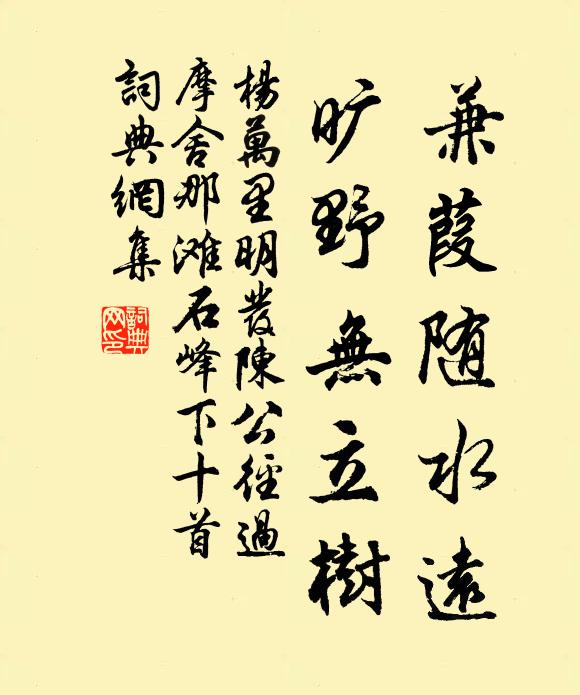 兼葭随水遠
旷野無立樹
楊萬里明發陳公徑過
摩舍那滩石峰下十首
詞典網集
詞典网印